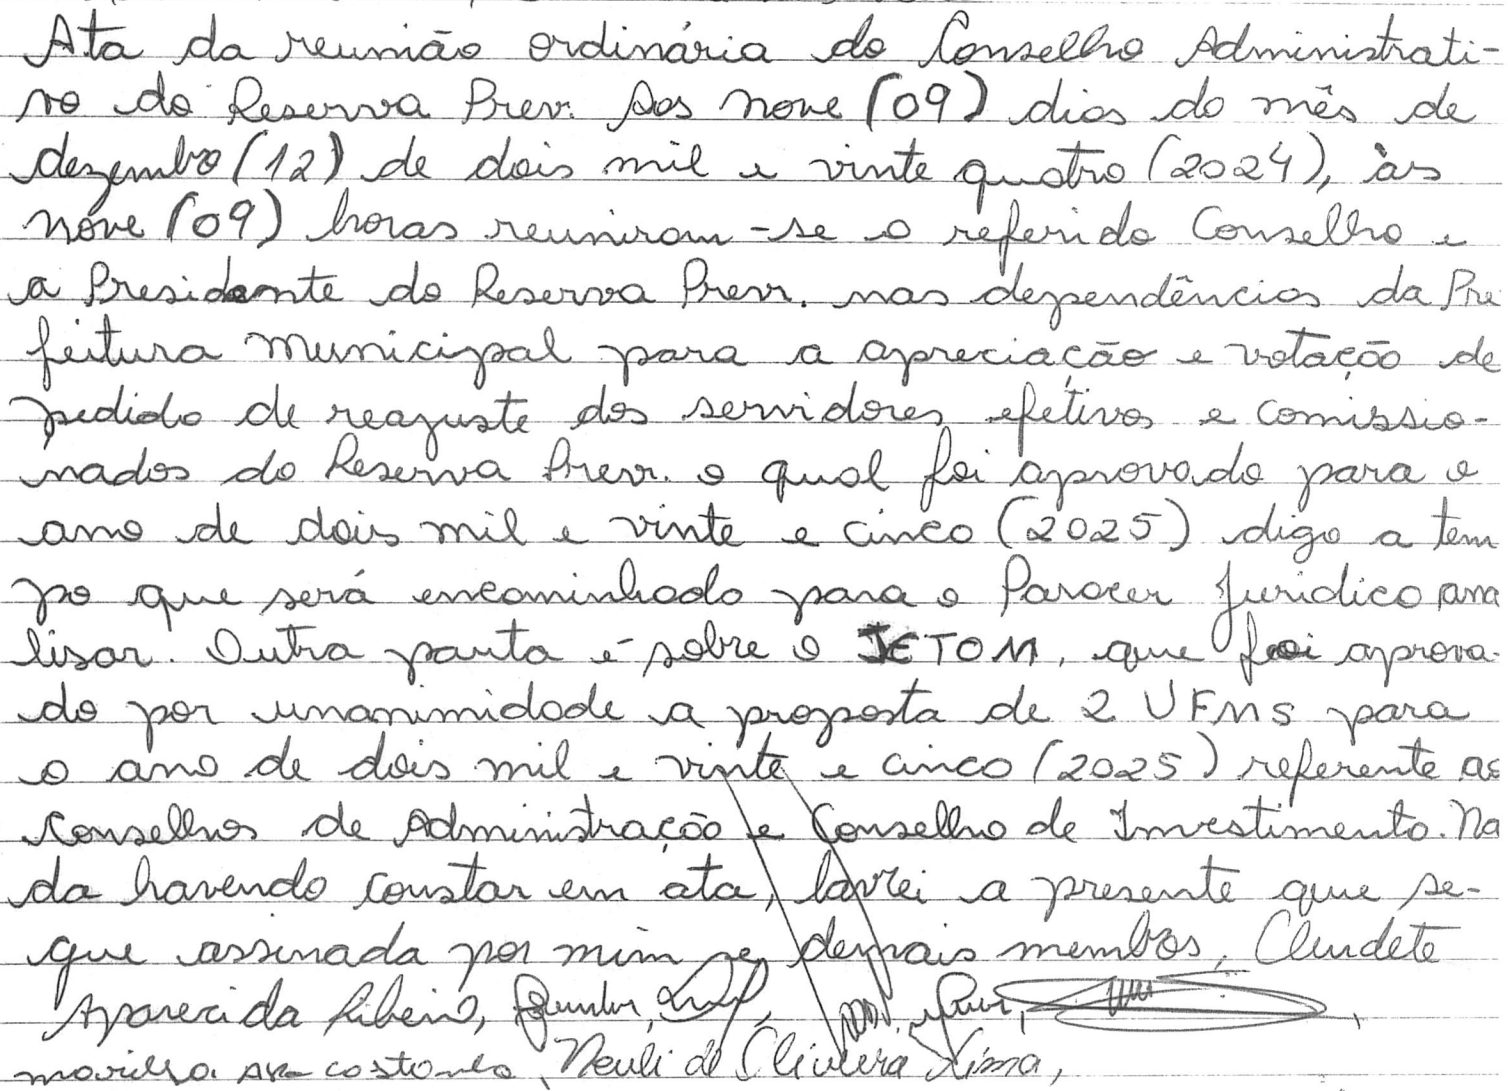 Ata da reunião ordinária do Conselho Administrati-
vo do Reserva Prev. Aos nove (09) dias do mês de
dezembro (12) de dois mil e vinte quatro (2024), às
nove (09) horas reuniram-se o referido Conselho e
a Presidente do Reserva Prev. nas dependências da Pre
feitura municipal para a apreciação e votação de
pedido de reajuste dos servidores efetivos e comissio-
nados do Reserva Prev. o qual foi aprovado para o
ano de dois mil e vinte e cinco (2025) digo a tem
po que será encaminhado para o Parecer Jurídico ana
lisar. Outra pauta é sobre o JETOM, que foi aprova-
do por unanimidade a proposta de 2 UFMS para
o ano de dois mil e vinte e cinco (2025) referente as
Conselhos de Administração e Conselho de Investimento. Na
da havendo constar em ata, lavrei a presente que se-
gue assinada por mim e demais membros, Claudete
Aparecida Ribeiro,
Neuli de Oliveira Lima,